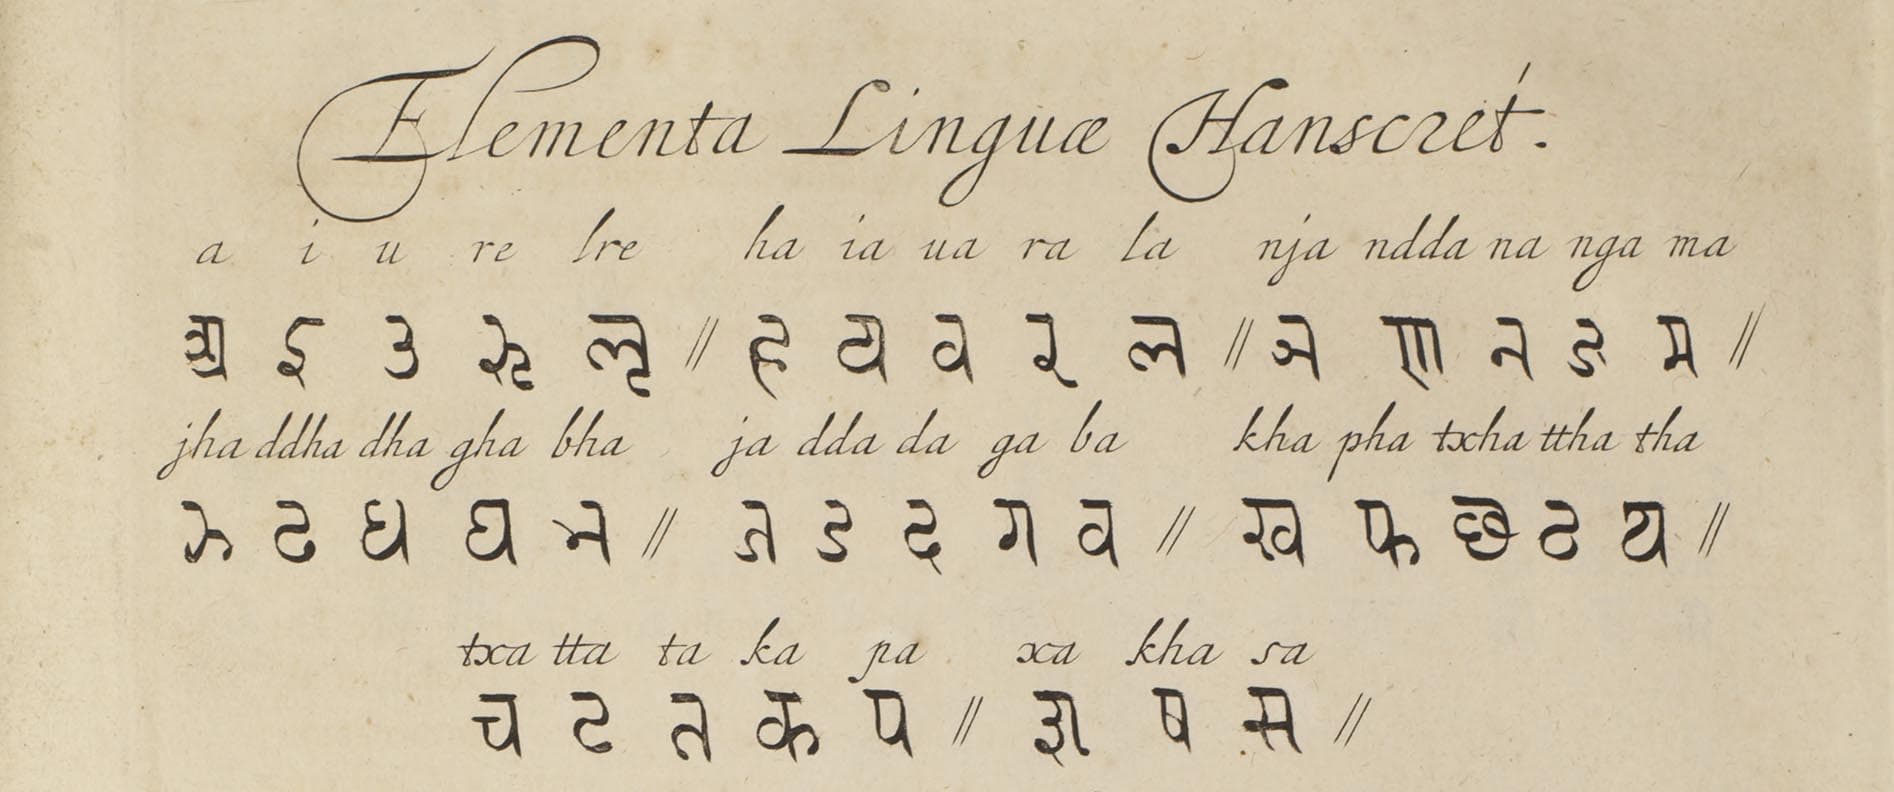 Elementa Linguæ Hanscret́.
a i u re lre ha ia ua ra la nja ndda na nga ma
अ इ उ ऋ ऌ // ह य व र ल // ञ ण न ङ म //
jha ddha dha gha bha ja dda da ga ba kha pha txha ttha tha
झ ढ ध घ भ // ज ड द ग व // ख फ छ ठ थ //
txa tta ta ka pa xa kha sa
च ट त क प // श ष स //